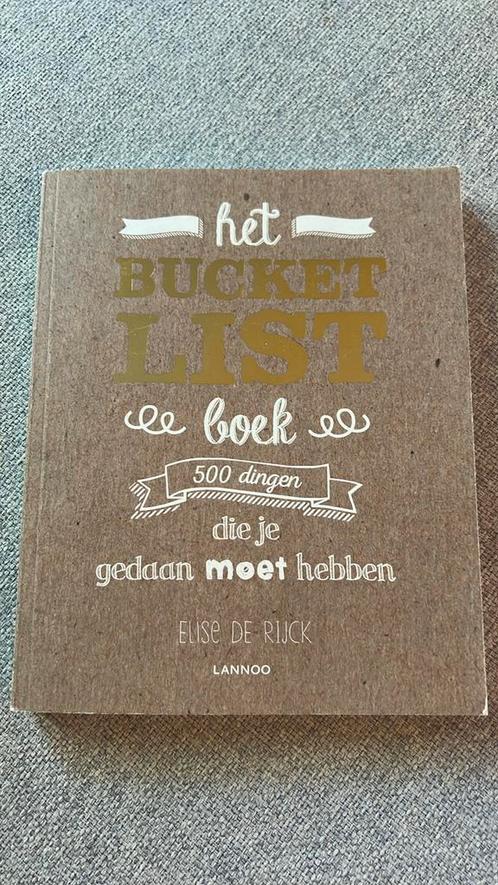 het
BUCKET
LIST
boek
500 dingen
die je
gedaan moet hebben
ELISE DE RIJCK
LANNOO